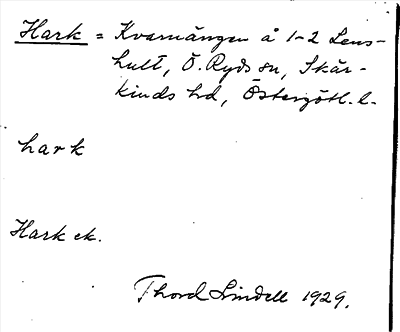 Hark = Kvarnängen å 1-2 Lens-
hult, Ö. Ryds sn, Skär-
kinds hd, Östergötl. l.
hark
Hark ek.
Thord Lindell 1929.